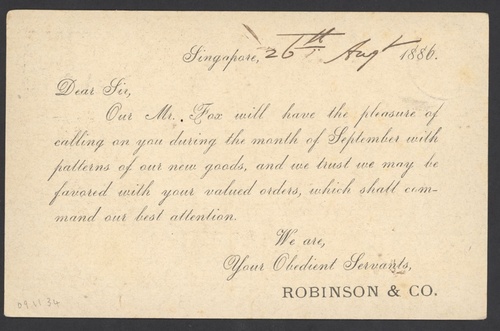 Singapore, 26th Augt 1886.
Dear Sir,
Our Mr. Fox will have the pleasure of
calling on you during the month of September with
patterns of our new goods, and we trust we may be
favored with your valued orders, which shall com-
mand our best attention.
We are,
Your Obedient Servants,
ROBINSON & CO.
09.11.34